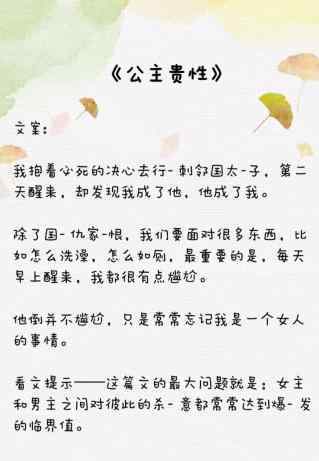 《公主贵性》
文案：
我抱着必死的决心去行-刺邻国太-子，第二
天醒来，却发现我成了他，他成了我。
除了国-仇家-恨，我们要面对很多东西，比
如怎么洗澡，怎么如厕，最重要的是，每天
早上醒来，我都很有点尴尬。
他倒并不尴尬，只是常常忘记我是一个女人
的事情。
看文提示——这篇文的最大问题就是：女主
和男主之间对彼此的杀-意都常常达到爆-发
的临界值。